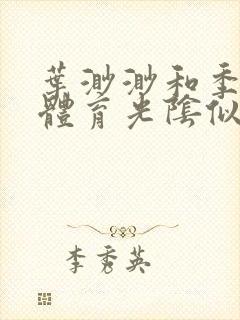 葉渺渺和季
體育光陰似
李秀英